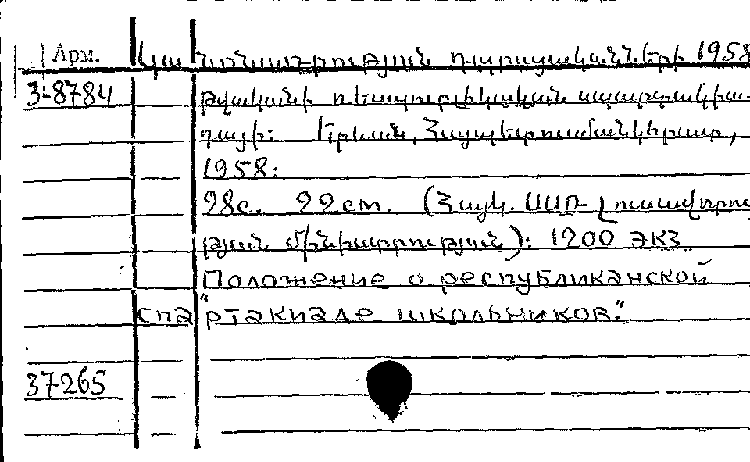 Арм. Կանոնադրության դպրոցականների 1958
3-8784 թվականի ռեսպուբլիկական սպարտակիա-
դայի: Երևան, Հայպետուսմանկհրատ,
1958:
28с. 22см. (Հայկ. ՍՍՌ Լուսավորու
թյան մինիստրություն): 1200 экз.
Положение о республиканской
спа"ртакиаде школьников."
37265